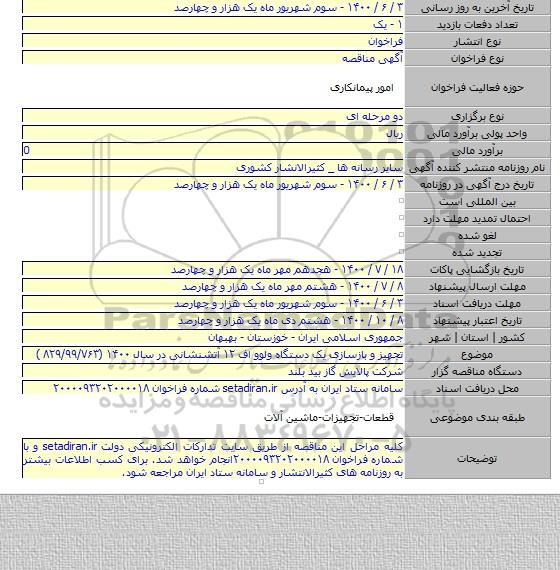 تاریخ آخرین به روز رسانی ۳ / ۶ / ۱۴۰۰ - سوم شهریور ماه یک هزار و چهارصد
تعداد دفعات بازدید ۱ - یک
نوع انتشار فراخوان
نوع فراخوان آگهی مناقصه
حوزه فعالیت فراخوان امور پیمانکاری
نوع برگزاری دو مرحله ای
واحد پولی برآورد مالی ریال
برآورد مالی 0
نام روزنامه منتشر کننده آگهی سایر رسانه ها _ کثیرالانتشار کشوری
تاریخ درج آگهی در روزنامه ۳ / ۶ / ۱۴۰۰ - سوم شهریور ماه یک هزار و چهارصد
بین المللی است
احتمال تمدید مهلت دارد
لغو شده
تجدید شده
تاریخ بازگشایی پاکات ۱۸ / ۷ / ۱۴۰۰ - هجدهم مهر ماه یک هزار و چهارصد
مهلت ارسال پیشنهاد ۸ / ۷ / ۱۴۰۰ - هشتم مهر ماه یک هزار و چهارصد
مهلت دریافت اسناد ۳ / ۶ / ۱۴۰۰ - سوم شهریور ماه یک هزار و چهارصد
تاریخ اعتبار پیشنهاد ۸ / ۱۰ / ۱۴۰۰ - هشتم دی ماه یک هزار و چهارصد
کشور | استان | شهر جمهوری اسلامی ایران - خوزستان - بهبهان
موضوع تجهیز و بازسازی یک دستگاه ولوو اف ۱۲ آتشنشانی در سال ۱۴۰۰ (۸۲۹/۹۹/۷۶۳ )
دستگاه مناقصه گزار شرکت پالایش گاز بید بلند
محل دریافت اسناد سامانه ستاد ایران به آدرس setadiran.ir شماره فراخوان ۲۰۰۰۰۹۳۲۰۲۰۰۰۰۱۸
طبقه بندی موضوعی قطعات-تجهیزات-ماشین آلات
توضیحات کلیه مراحل این مناقصه از طریق سایت تدارکات الکترونیکی دولت setadiran.ir و با
شماره فراخوان ۲۰۰۰۰۹۳۲۰۲۰۰۰۰۱۸انجام خواهد شد. برای کسب اطلاعات بیشتر
به روزنامه های کثیرالانتشار و سامانه ستاد ایران مراجعه شود.
پایگاه اطلاع رسانی مناقصه و مزایده